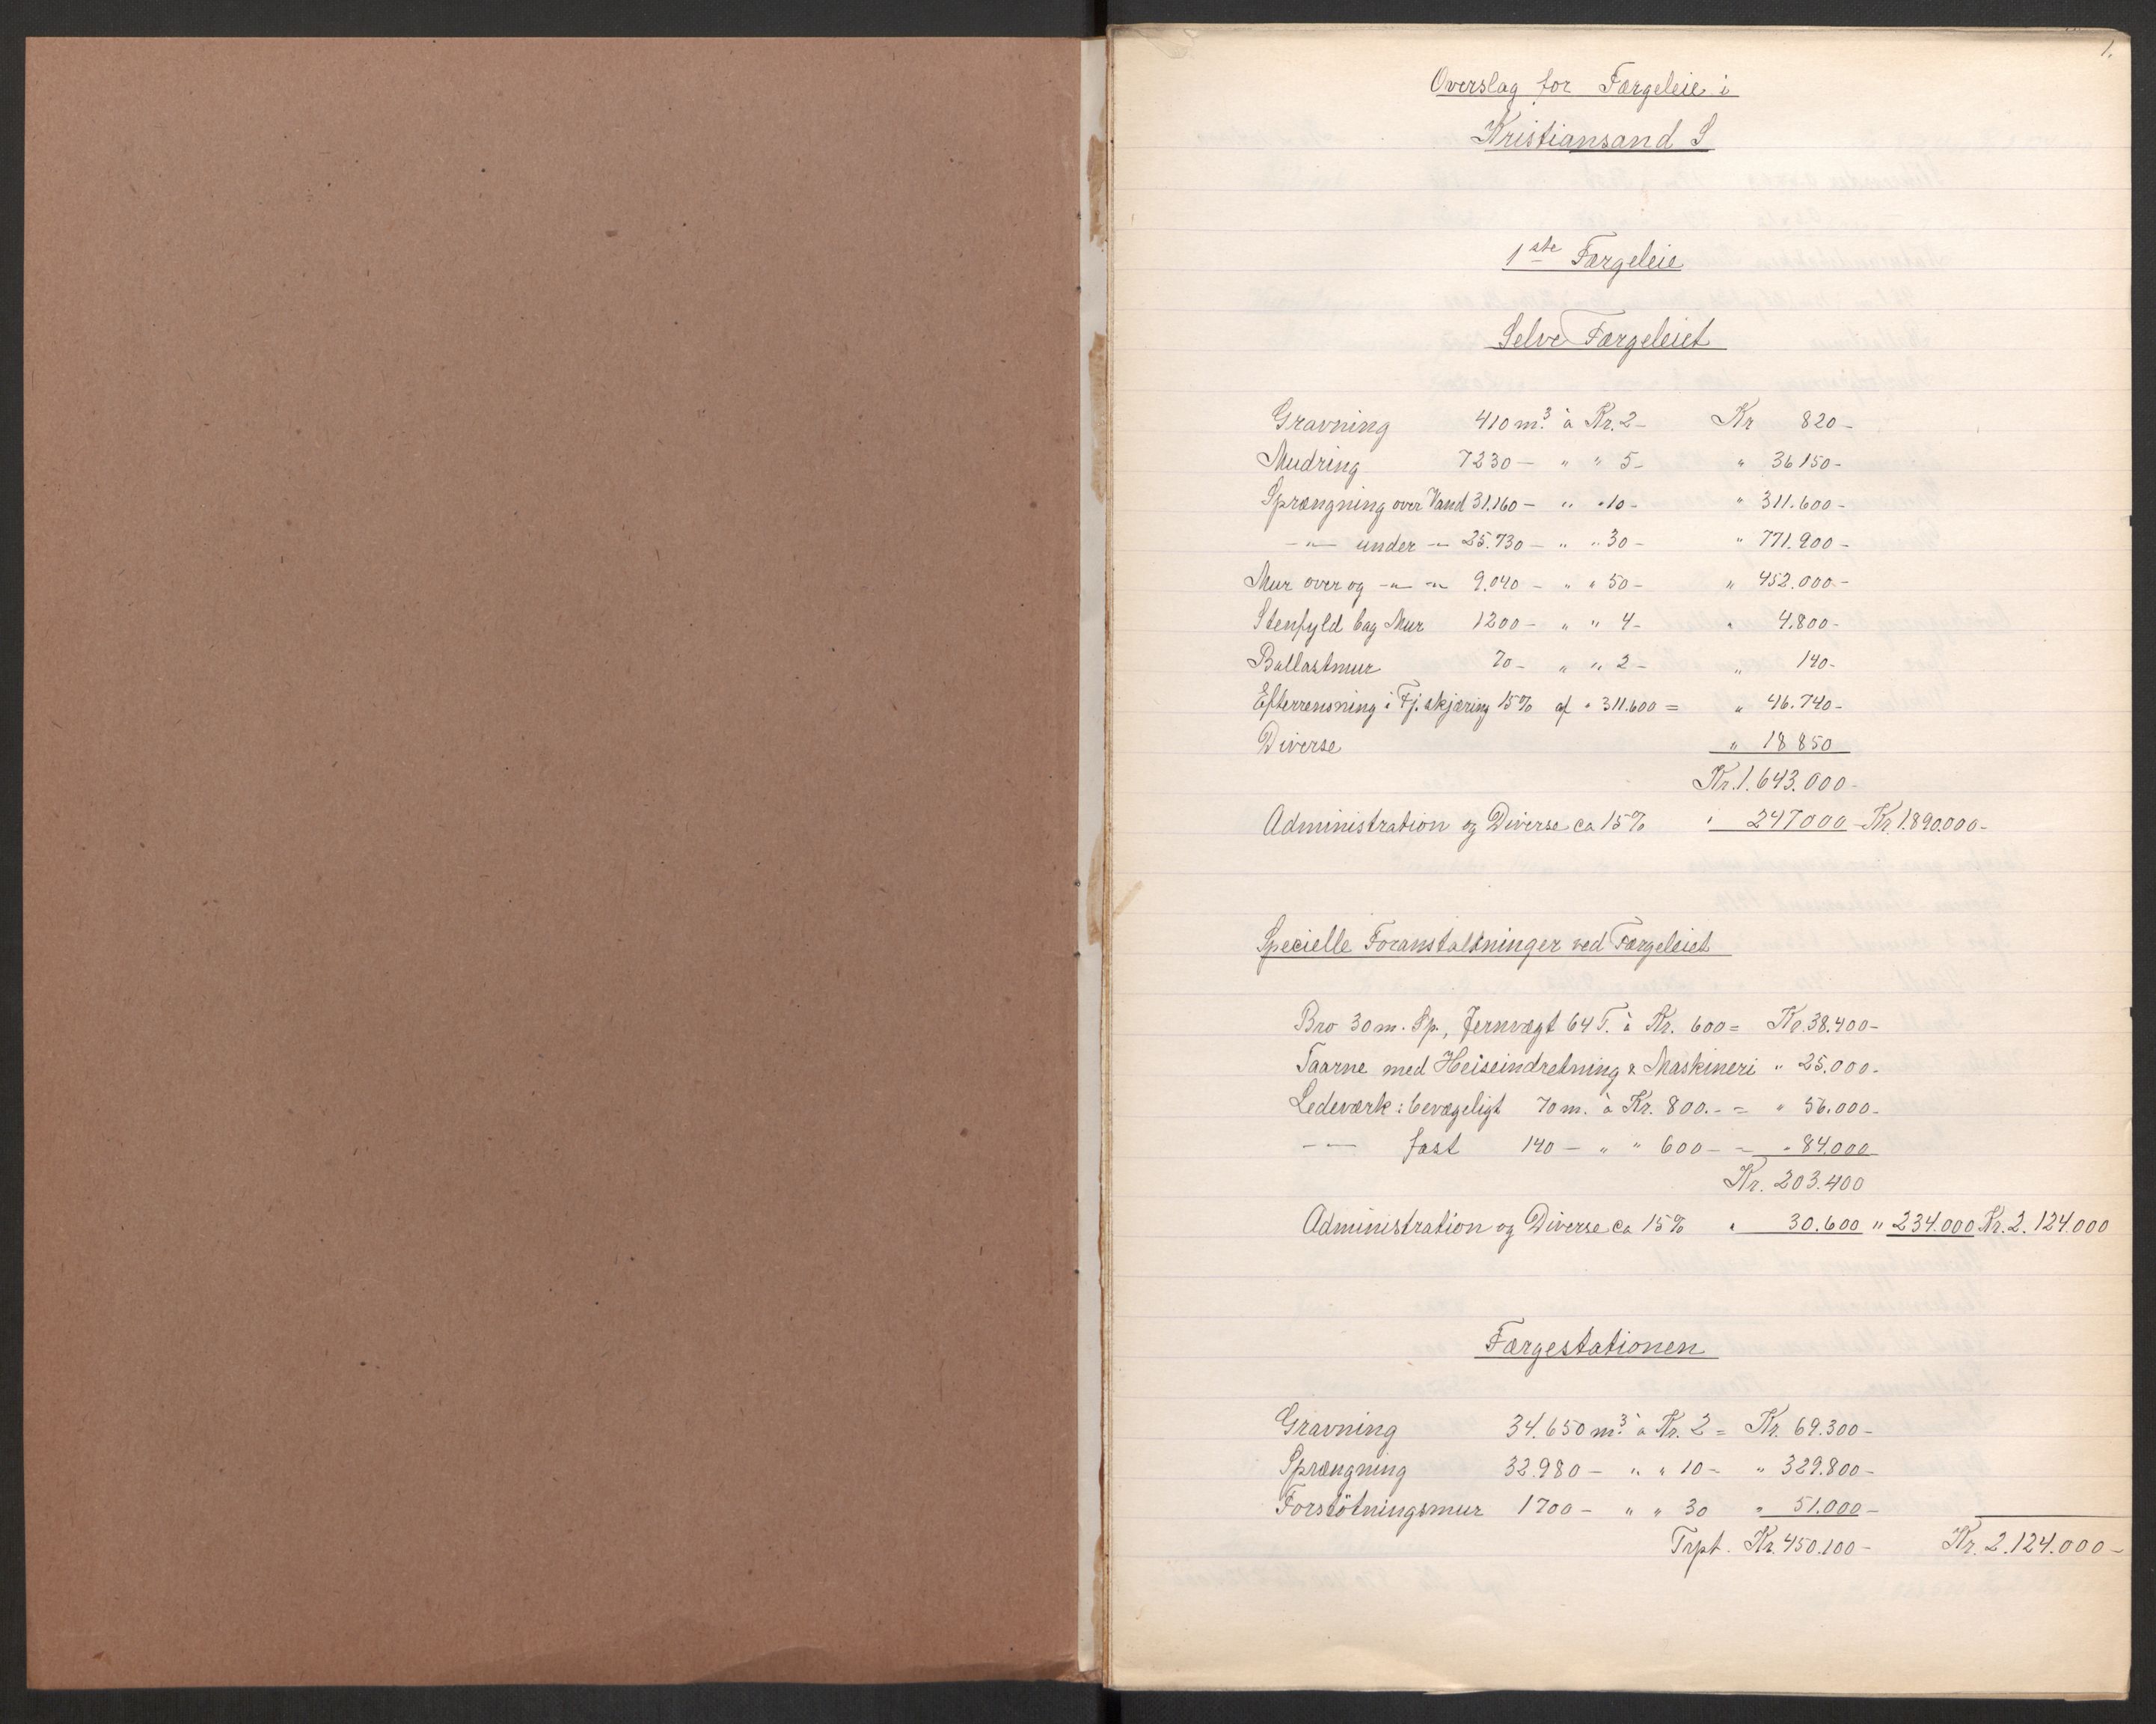 1.
Overslag for Færgeleie i
Kristiansand S
1ste Færgeleie
Selve Færgeleiet
Gravning 410 m3. à Kr. 2 – Kr 820 –
Mudring 7230 – " " 5 – " 36150 –
Sprængning over Vand 31.160 – " " 10 – " 311.600 –
– " – under – " – 25.730 – " " 30 – " 771.900 –
Mur over og – " – – " – 9.040 – " " 50 – " 452.000 –
Stenfyld bag Mur 1200 – " " 4 – " 4.800 –
Ballastmur 70 – " " 2 – " 140 –
Efterrensning i Fj. skjæring 15 % af " 311.600 = " 46.740 –
Diverse " 18 850
Kr. 1.643.000 –
Administration og Diverse ca 15 % " 247000 – Kr. 1.890.000 –
Specielle Foranstaltninger ved Færgeleiet
Bro 30 m. Sp., Jernvægt 64 T. à Kr. 600 = Kr. 38.400 –
Taarne med Heiseindretning & Maskineri " 25.000 –
Ledeværk: bevægeligt 70 m. à Kr. 800. – = " 56.000 –
– " – fast 140 – " " 600 – = " 84.000
Kr. 203.400
Administration og Diverse ca 15 % " 30.600 " 234.000 Kr. 2.124.000
Færgestationen
Gravning 34.650 m3. à Kr. 2 = Kr. 69.300 –
Sprængning 32.980 – " " 10 – " 329.800 –
Forstötningsmur 1700 – " " 30 " 51.000 –
Trpt. Kr. 450.100 – Kr. 2.124.000 –